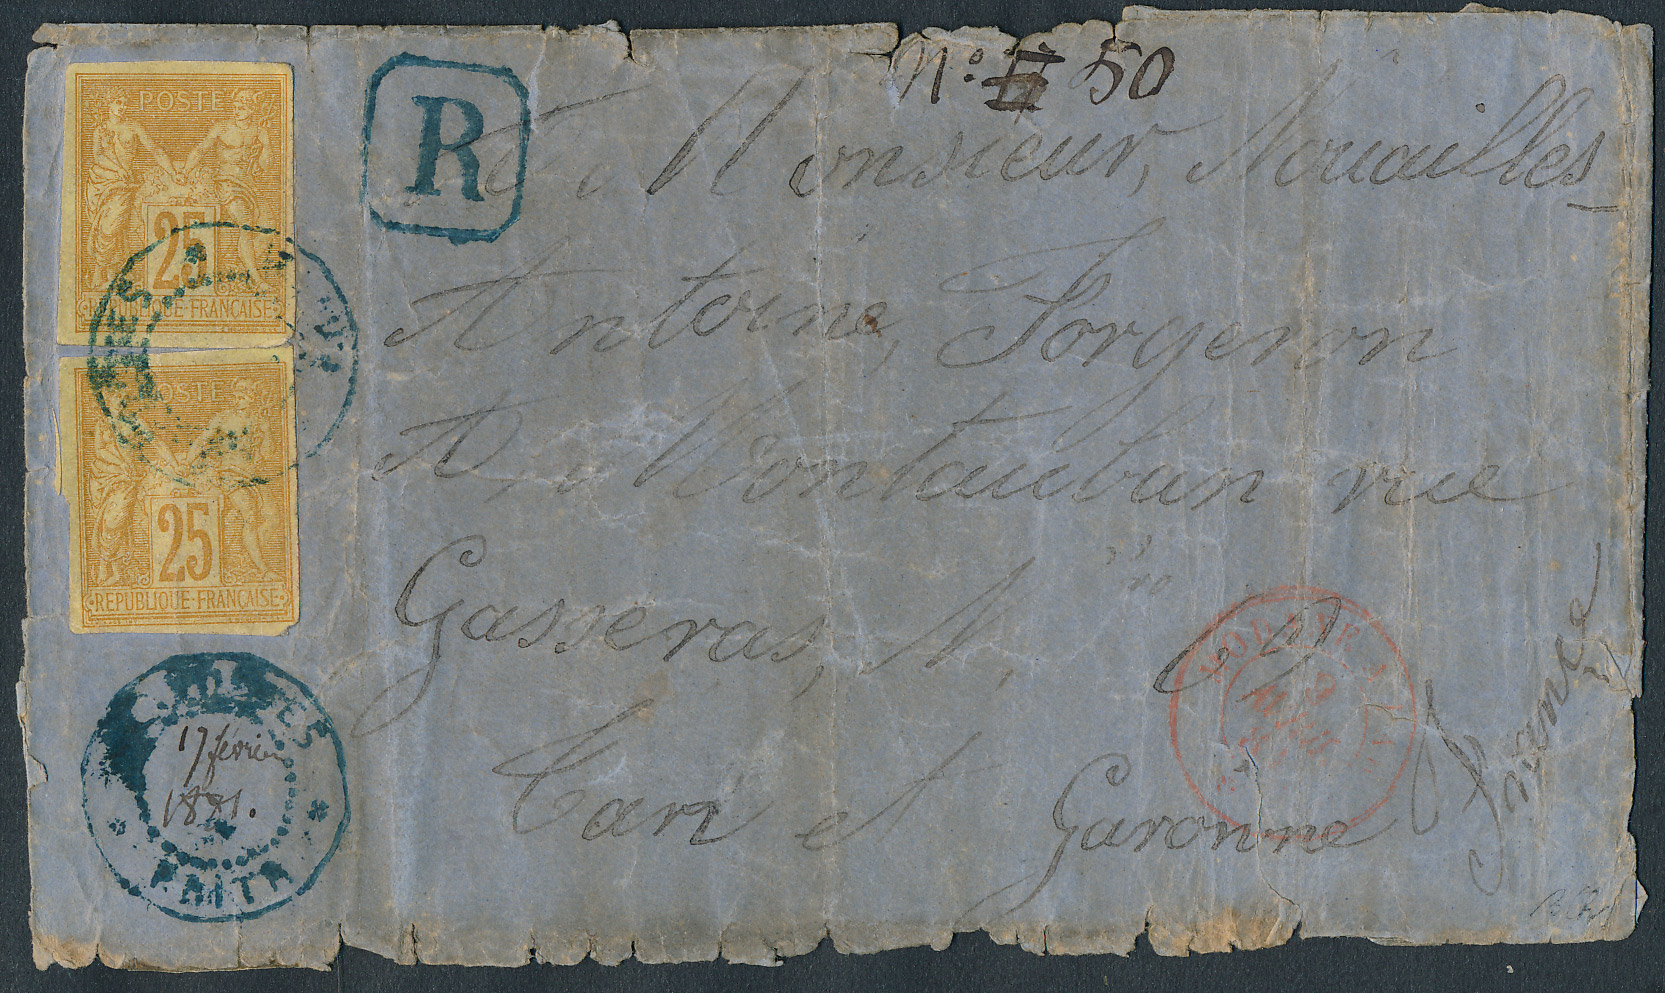 N° 50
R
POSTE
25
REPUBLIQUE FRANÇAISE
POSTE
25
REPUBLIQUE FRANÇAISE
A Monsieur, Nouailles
Antoine, Forgeron
A, Montauban rue
Gasseras, N,
Tarn et Garonne
France
17 février
1881.